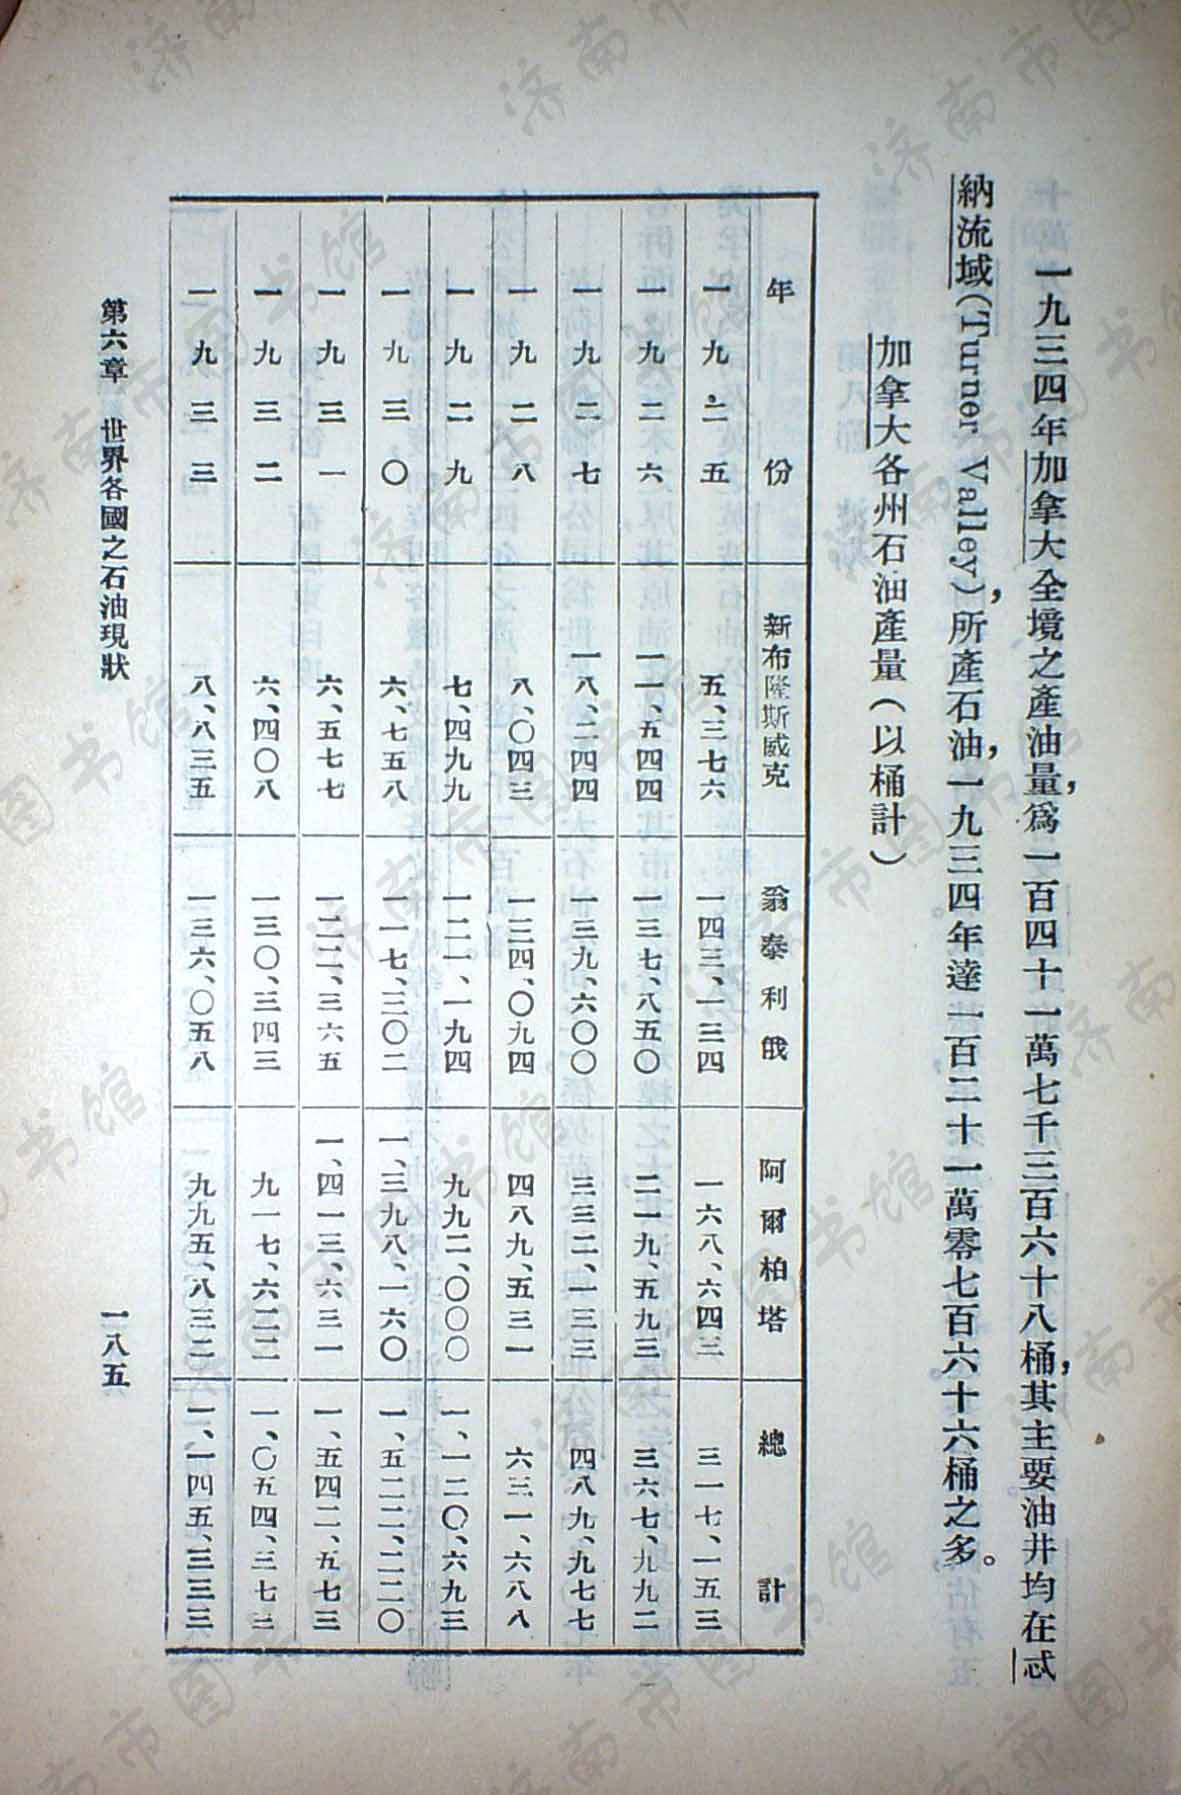 一九三四年加拿大全境之產油量，爲一百四十一萬七千三百六十八桶，其主要油井均在忒
納流域(Turner Valley)，所產石油，一九三四年達一百二十一萬零七百六十六桶之多。
加拿大各州石油產量（以桶計）
年份 新布隆斯威克 翁泰利俄 阿爾柏塔 總計
一九二五 五、三七六 一四三、一三四 一六八、六四三 三一七、一五三
一九二六 一一、五四四 一三七、八五〇 二一九、五九三 三六七、九九二
一九二七 一八、二四四 一三九、六〇〇 三三二、一三三 四八九、九七七
一九二八 八、〇四三 一三四、〇九四 四八九、五三一 六三一、六八八
一九二九 七、四九九 一二一、一九四 九九二、〇〇〇 一、一二〇、六九三
一九三〇 六、七五八 一一七、三〇二 一、三九八、一六〇 一、五二二、二二〇
一九三一 六、五七七 一二二、三六五 一、四一三、六三一 一、五四二、五七三
一九三二 六、四〇八 一三〇、三四三 九一七、六二二 一、〇五四、三七三
一九三三 八、八三五 一三六、〇五八 九九五、八三二 一、一四五、三三三
第六章 世界各國之石油現狀
一八五
济南市图书馆